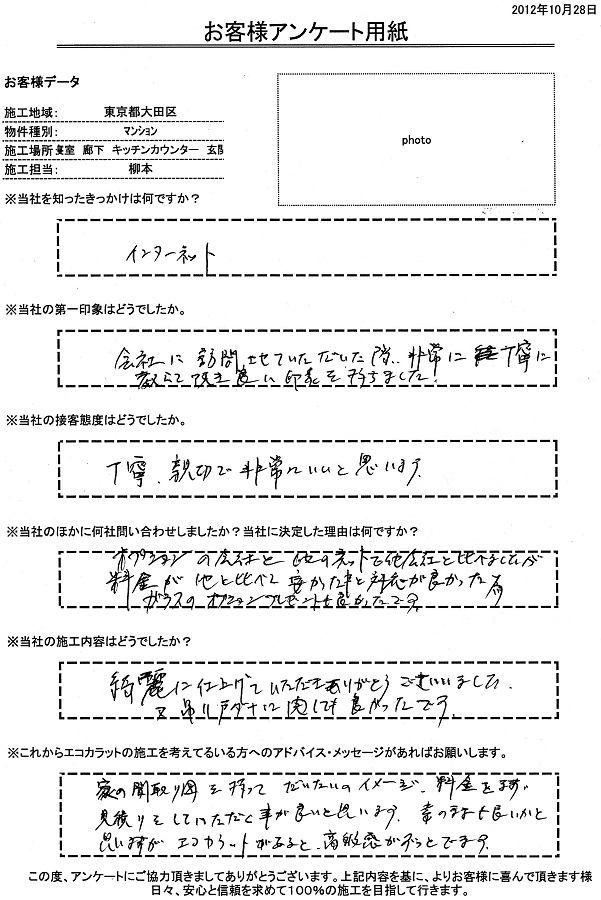 2012年10月28日
お客様アンケート用紙
お客様データ
施工地域: 東京都大田区
物件種別: マンション
施工場所 寝室 廊下 キッチンカウンター 玄関
施工担当: 柳本
photo
※当社を知ったきっかけは何ですか？
インターネット
※当社の第一印象はどうでしたか。
会社に訪問させていただいた際、非常に丁寧に
教えて頂き良い印象を持ちました。
※当社の接客態度はどうでしたか。
丁寧、親切で非常にいいと思います。
※当社のほかに何社問い合わせしましたか？当社に決定した理由は何ですか？
オプションの会社と他のネットで他会社と比べましたが
料金が他と比べて安かった事と対応が良かった為
ガラスのオプションプレゼントも良かったです。
※当社の施工内容はどうでしたか？
綺麗に仕上げていただきありがとうございました。
吊り戸ダナに関しても良かったです。
※これからエコカラットの施工を考えてるいる方へのアドバイス・メッセージがあればお願いします。
家の間取り図を持って だいたいのイメージ、料金をまず
見積りをしていただく事が良いと思います。素のままも良いかと
思いますが エコカラットがあると、高級感がぐっとでます。
この度、アンケートにご協力頂きましてありがとうございます。上記内容を基に、よりお客様に喜んで頂きます様
日々、安心と信頼を求めて100%の施工を目指して行きます。